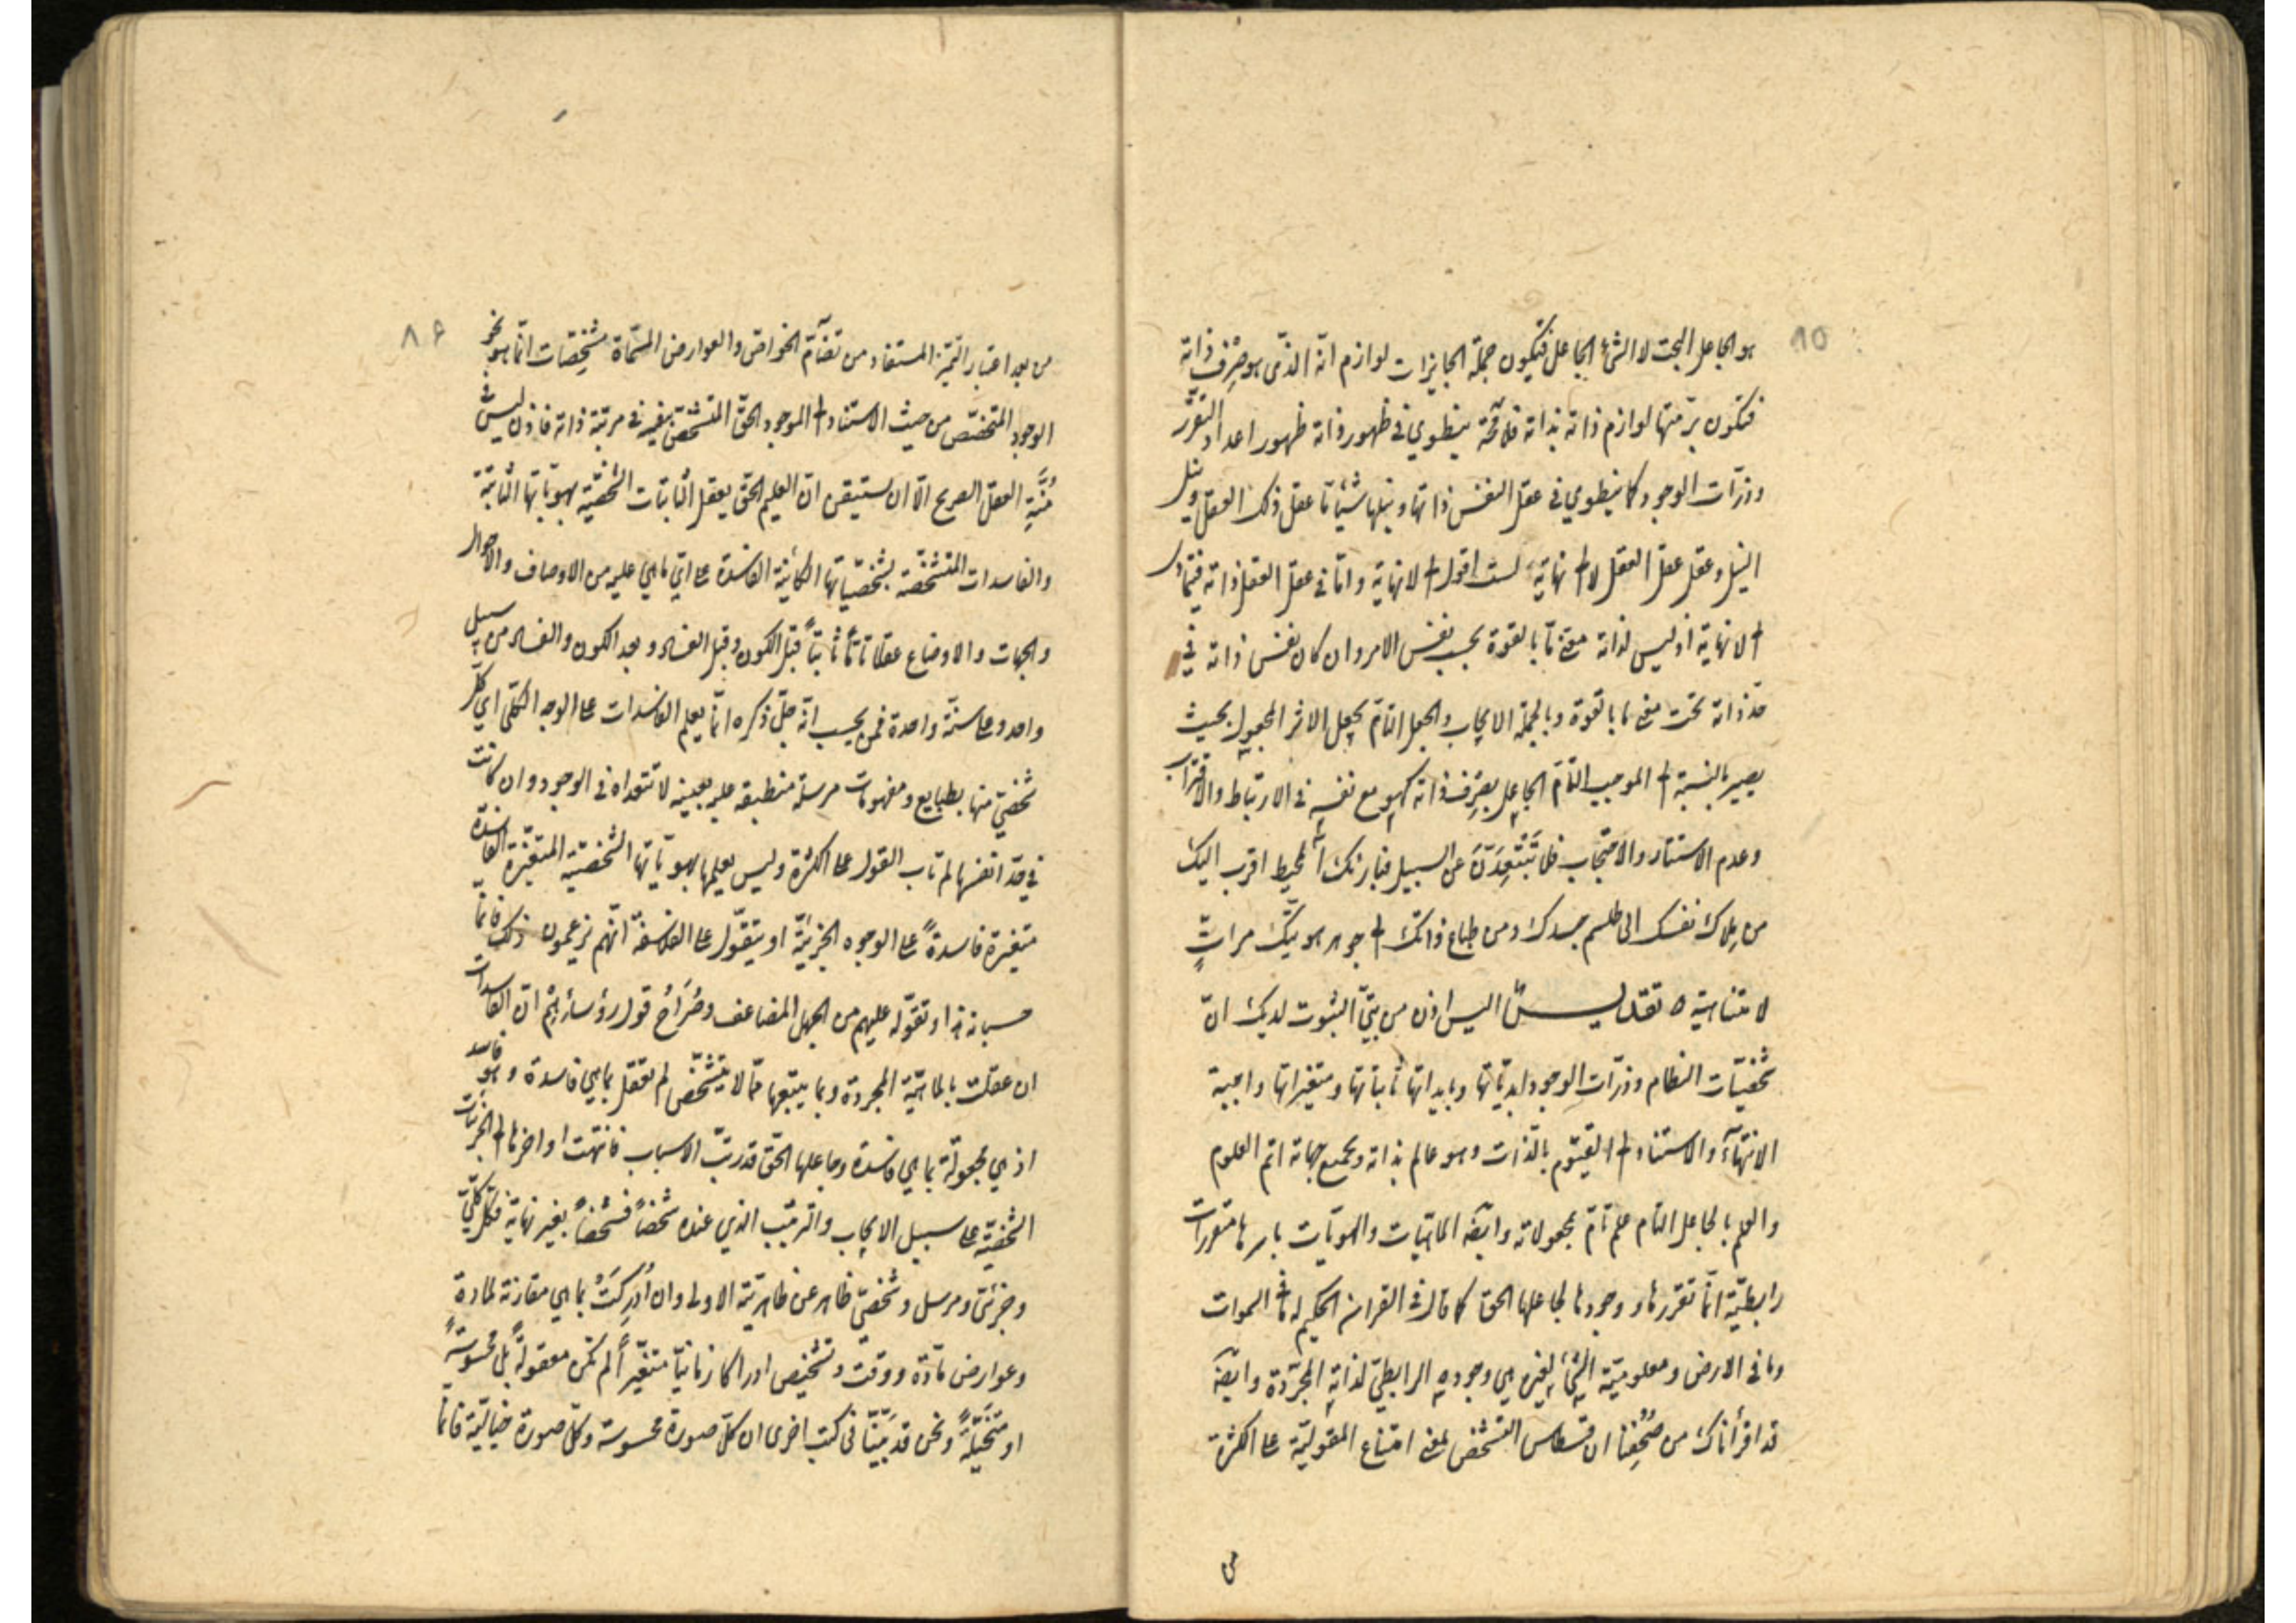 ٨٥
هو الجاعل البحت لا الشئ الجاعل فتكون جملة الجايزات لوازم انه الذى هو صرف ذاته
فتكون برمتها لوازم ذاته بذاته فلامحة ينطوي في ظهور ذاته ظهور اعداد التقرر
وذرات الوجود كما ينطوي في عقل النفس ذاتها ونيلها شيئا تا عقل ذلك العقل ونيل
النيل وعقل عقل العقل لا الى نهاية لست اقول الى لانهاية واما في عقل العقل ذاته فيتمادى
الى لانهاية اذ ليس لذاته معنى ما بالقوة بحسب نفس الامر وان كان نفس ذاته في
حد ذاته تحت معنى ما بالقوة وبالجملة الايجاب والجعل التام يجعل الاثر المجعول بحيث
يصير بالنسبة الى الموجب التام الجاعل بصرف ذاته كهو مع نفسه في الارتباط والاقتراب
وعدم الاستتار والاحتجاب فلا تبتعدن عن السبيل فبارئك المحيط اقرب اليك
من ملاك نفسك الى طلسم جسدك ومن طباع ذاتك الى جوهر هويتك مرات
لا متناهية تقديس اليس اذن من بين الثبوت لديك ان
شخصيات النظام وذرات الوجود ابدياتها وبايداتها ثابتاتها ومتغيراتها واجبة
الانتهاء والاستناد الى القيوم بالذات وهو عالم بذاته وبجميع جهاته اتم العلوم
والعلم بالجاعل التام علم تام بمجعولاته وايضه الماهيات والهويات باسرها متقررات
رابطية انما تقررها ووجودها لجاعلها الحق كما قال في القران الحكيم له ما في السموات
وما في الارض ومعلومية الشئ لغيره هي وجوده الرابطي لذاته المجردة وايضه
قد اقرأناك من صحفنا ان قسطاس التشخص لمعنى امتناع المقولية على الكثرة
من
٨٦
من بعد اعتبار التميز المستفاد من تضآم الخواص والعوارض المسماة مشخصات انما هو نحو
الوجود المتخصص من حيث الاستناد الى الموجود الحق المتشخص بنفسه في مرتبة ذاته فاذن ليس في
منة العقل الصريح الا ان يستيقن ان العليم الحق يعقل الثابتات الشخصية بهوياتها الثابتة
والفاسدات المتشخصة بشخصياتها الكائنة الفاسدة على اتي ما هي عليه من الاوصاف والاحوال
والجهات والاوضاع عقلا تاما ثابتا قبل الكون وقبل الفساد وبعد الكون والفساد من سبيل
واحد وعلى سنة واحدة فمن يحسب انه جل ذكره انما يعلم الفاسدات على الوجه الكلى اي كل
شخصي منها بطبايع ومفهومات مرسلة منطبقة عليه بعينه لا تتعداه في الوجود وان كانت
في حد انفسها لم تاب القول على الكثرة وليس يعلمها بهوياتها الشخصية المتغيرة الفاسدة
متغيرة فاسدة على الوجوه الجزئية او يتقول على الفلاسفة انهم يزعمون ذلك فانما
حسبانه هذا او تقوله عليهم من الجهل المضاعف وصراح قول رؤسائهم ان الفاسدات
ان عقلت بالماهية المجردة وبما يتبعها مما لا يتشخص لم تعقل بما هي فاسدة وهو فاسد
اذ هي مجعولة بما هي فاسدة وجاعلها الحق قد رتب الاسباب فانتهت اواخرها الى الجزئيات
الشخصية على سبيل الايجاب والترتيب الذي عنده شخصا فشخصا بغير نهاية فكل كلي
وجزئي ومرسل وشخصي ظاهر عن ظاهريته الاولى وان ادركت بما هي مقارنة لمادة
وعوارض مادة ووقت وتشخيص ادراكا زمانيا متغيرا لم تكن معقولة بل محسوسة
او متخيلة ونحن قد بينا في كتب اخرى ان كل صورة محسوسة وكل صورة خيالية فانما